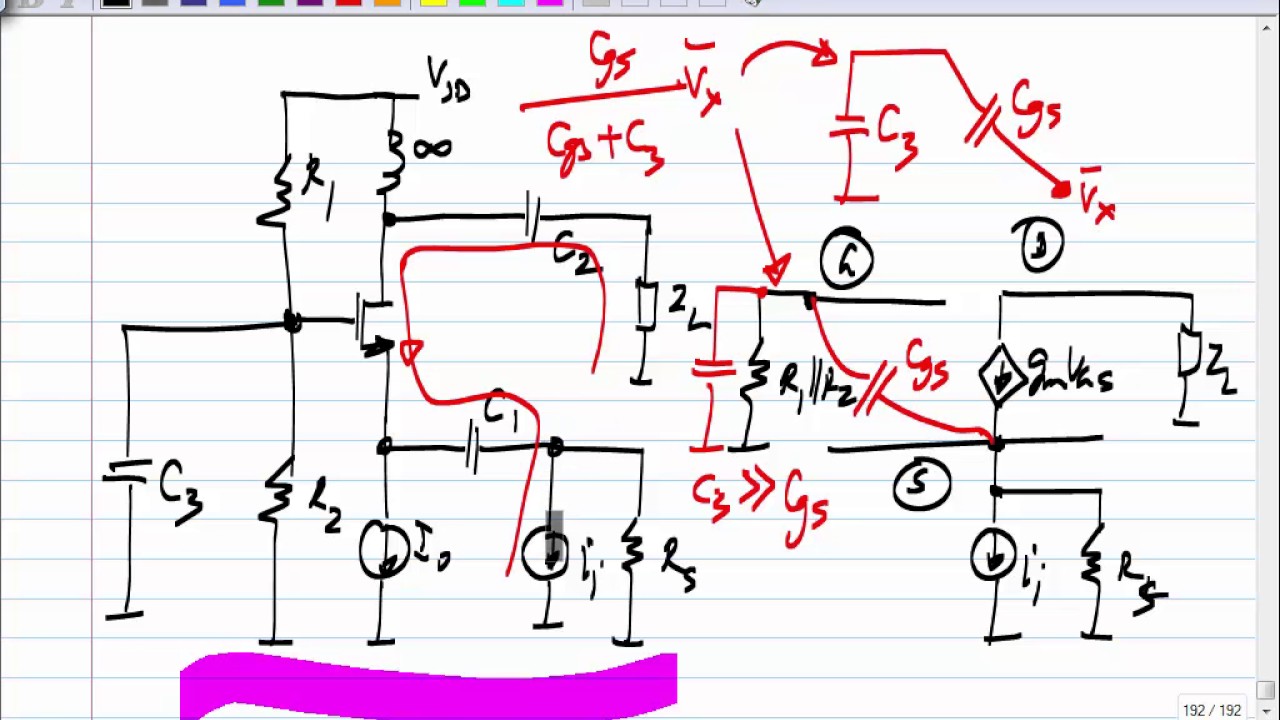 V_DD
R_1
∞
C_2
Z_L
C_1
C_3
R_2
I_0
i_i
R_s
C_gs
C_gs + C_3
V̄_x
C_3
C_gs
V̄_x
G
D
R_1||R_2
C_gs
g_m v_gs
Z_L
C_3 >> C_gs
S
i_i
R_s
192 / 192